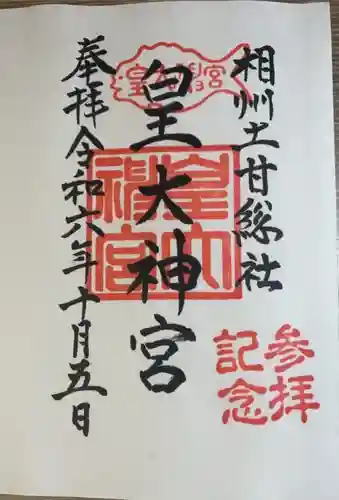 相州土甘総社
皇大神宮
皇大神宮
皇大神宮
奉拝令和六年十月五日
参拝
記念